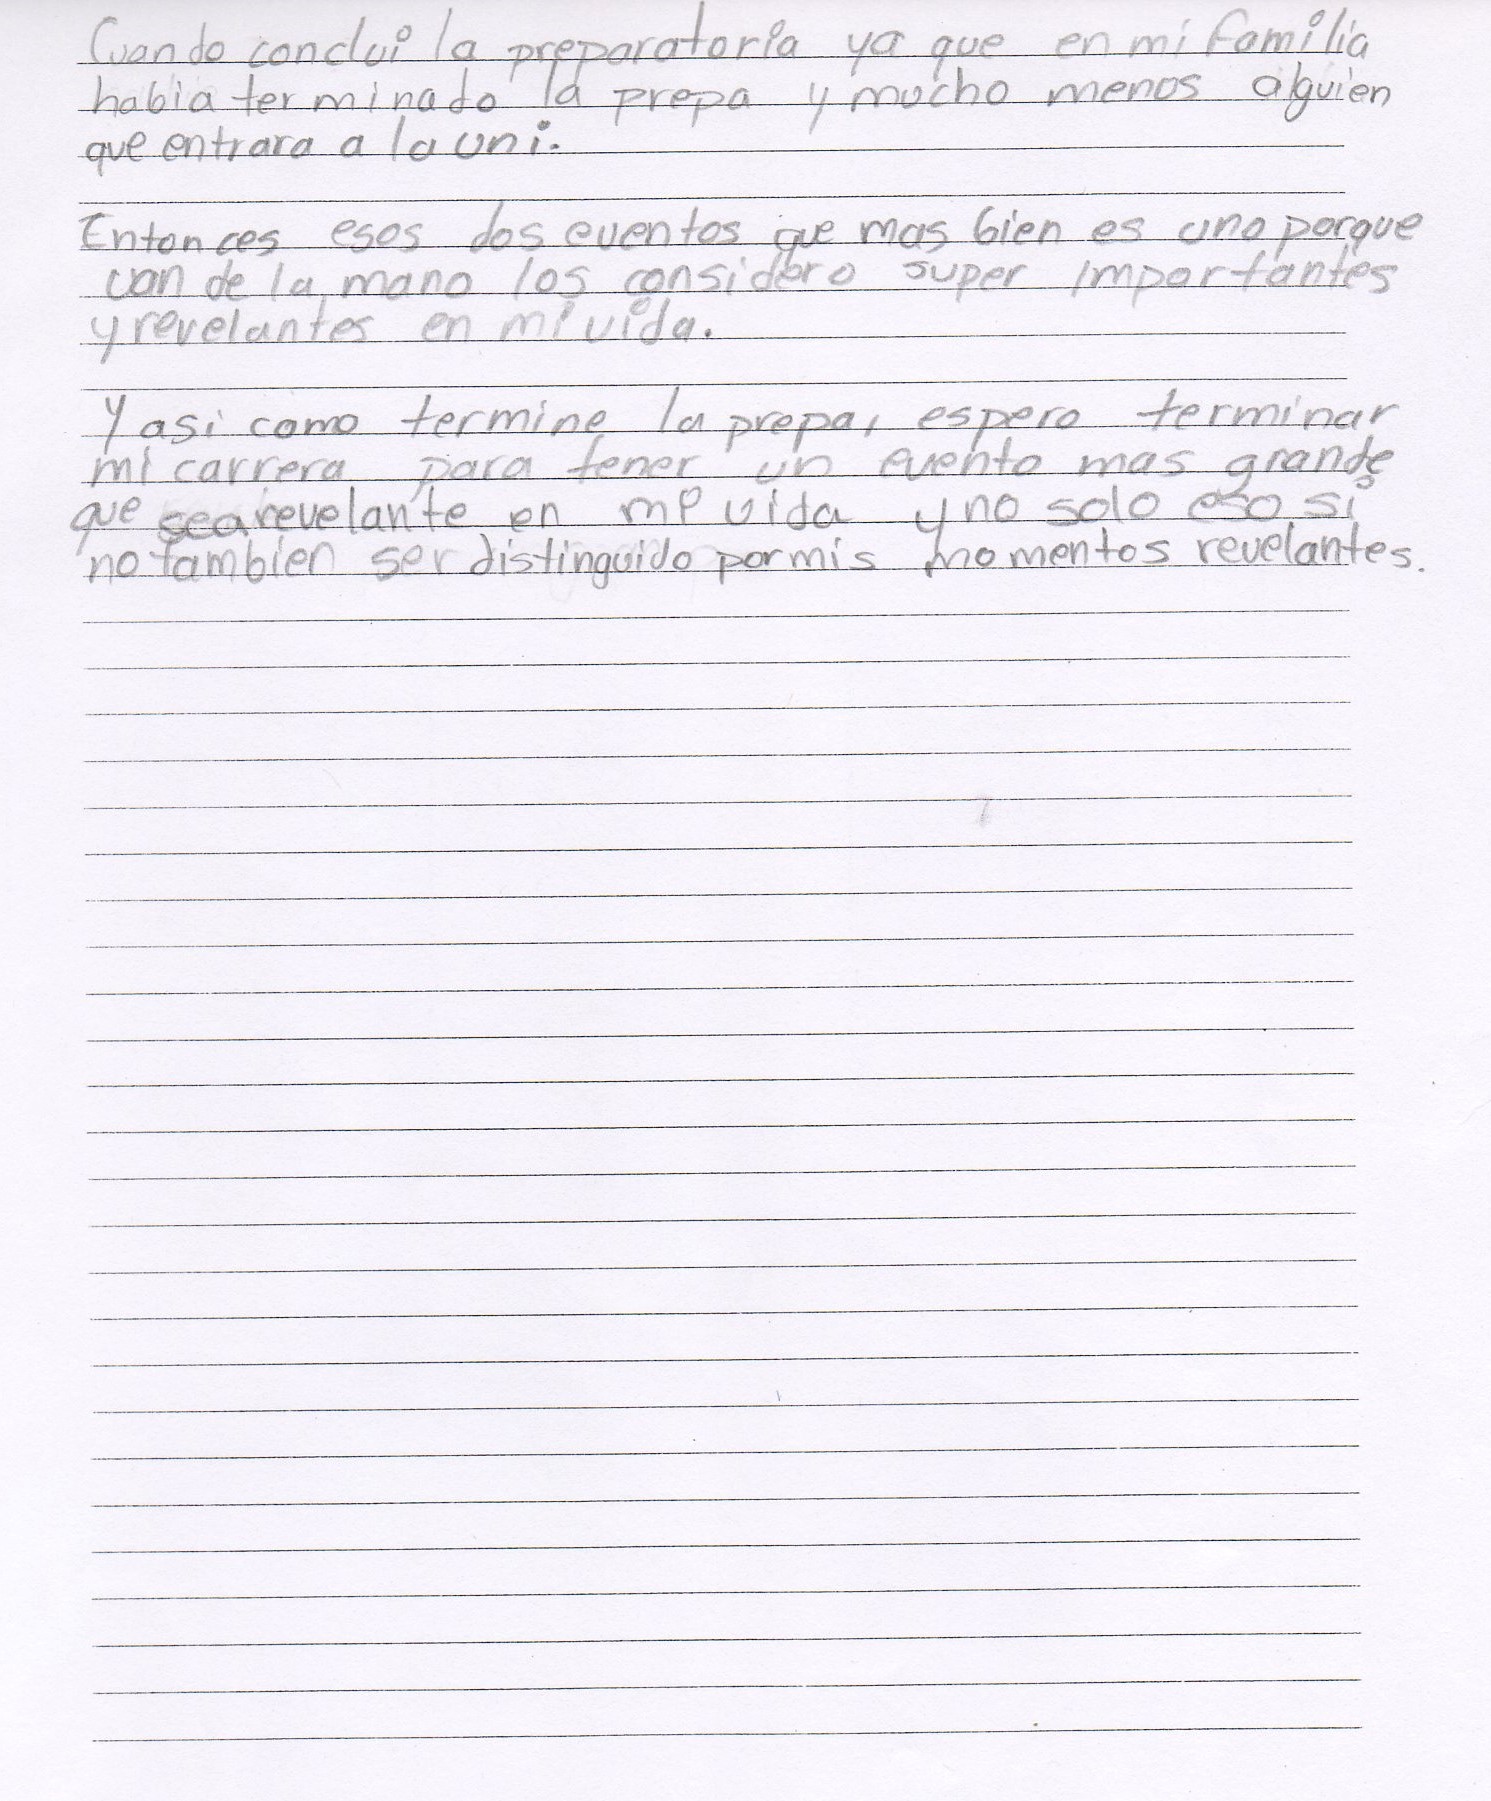 Cuando conclui la preparatoria ya que en mi familia
habia terminado la prepa y mucho menos alguien
que entrara a la uni.
Entonces esos dos eventos que mas bien es uno porque
van de la mano los considero super importantes
y revelantes en mi vida.
Y asi como termine la prepa, espero terminar
mi carrera para tener un evento mas grande
que sea revelante en mi vida y no solo eso si
no tambien ser distinguido por mis momentos revelantes.